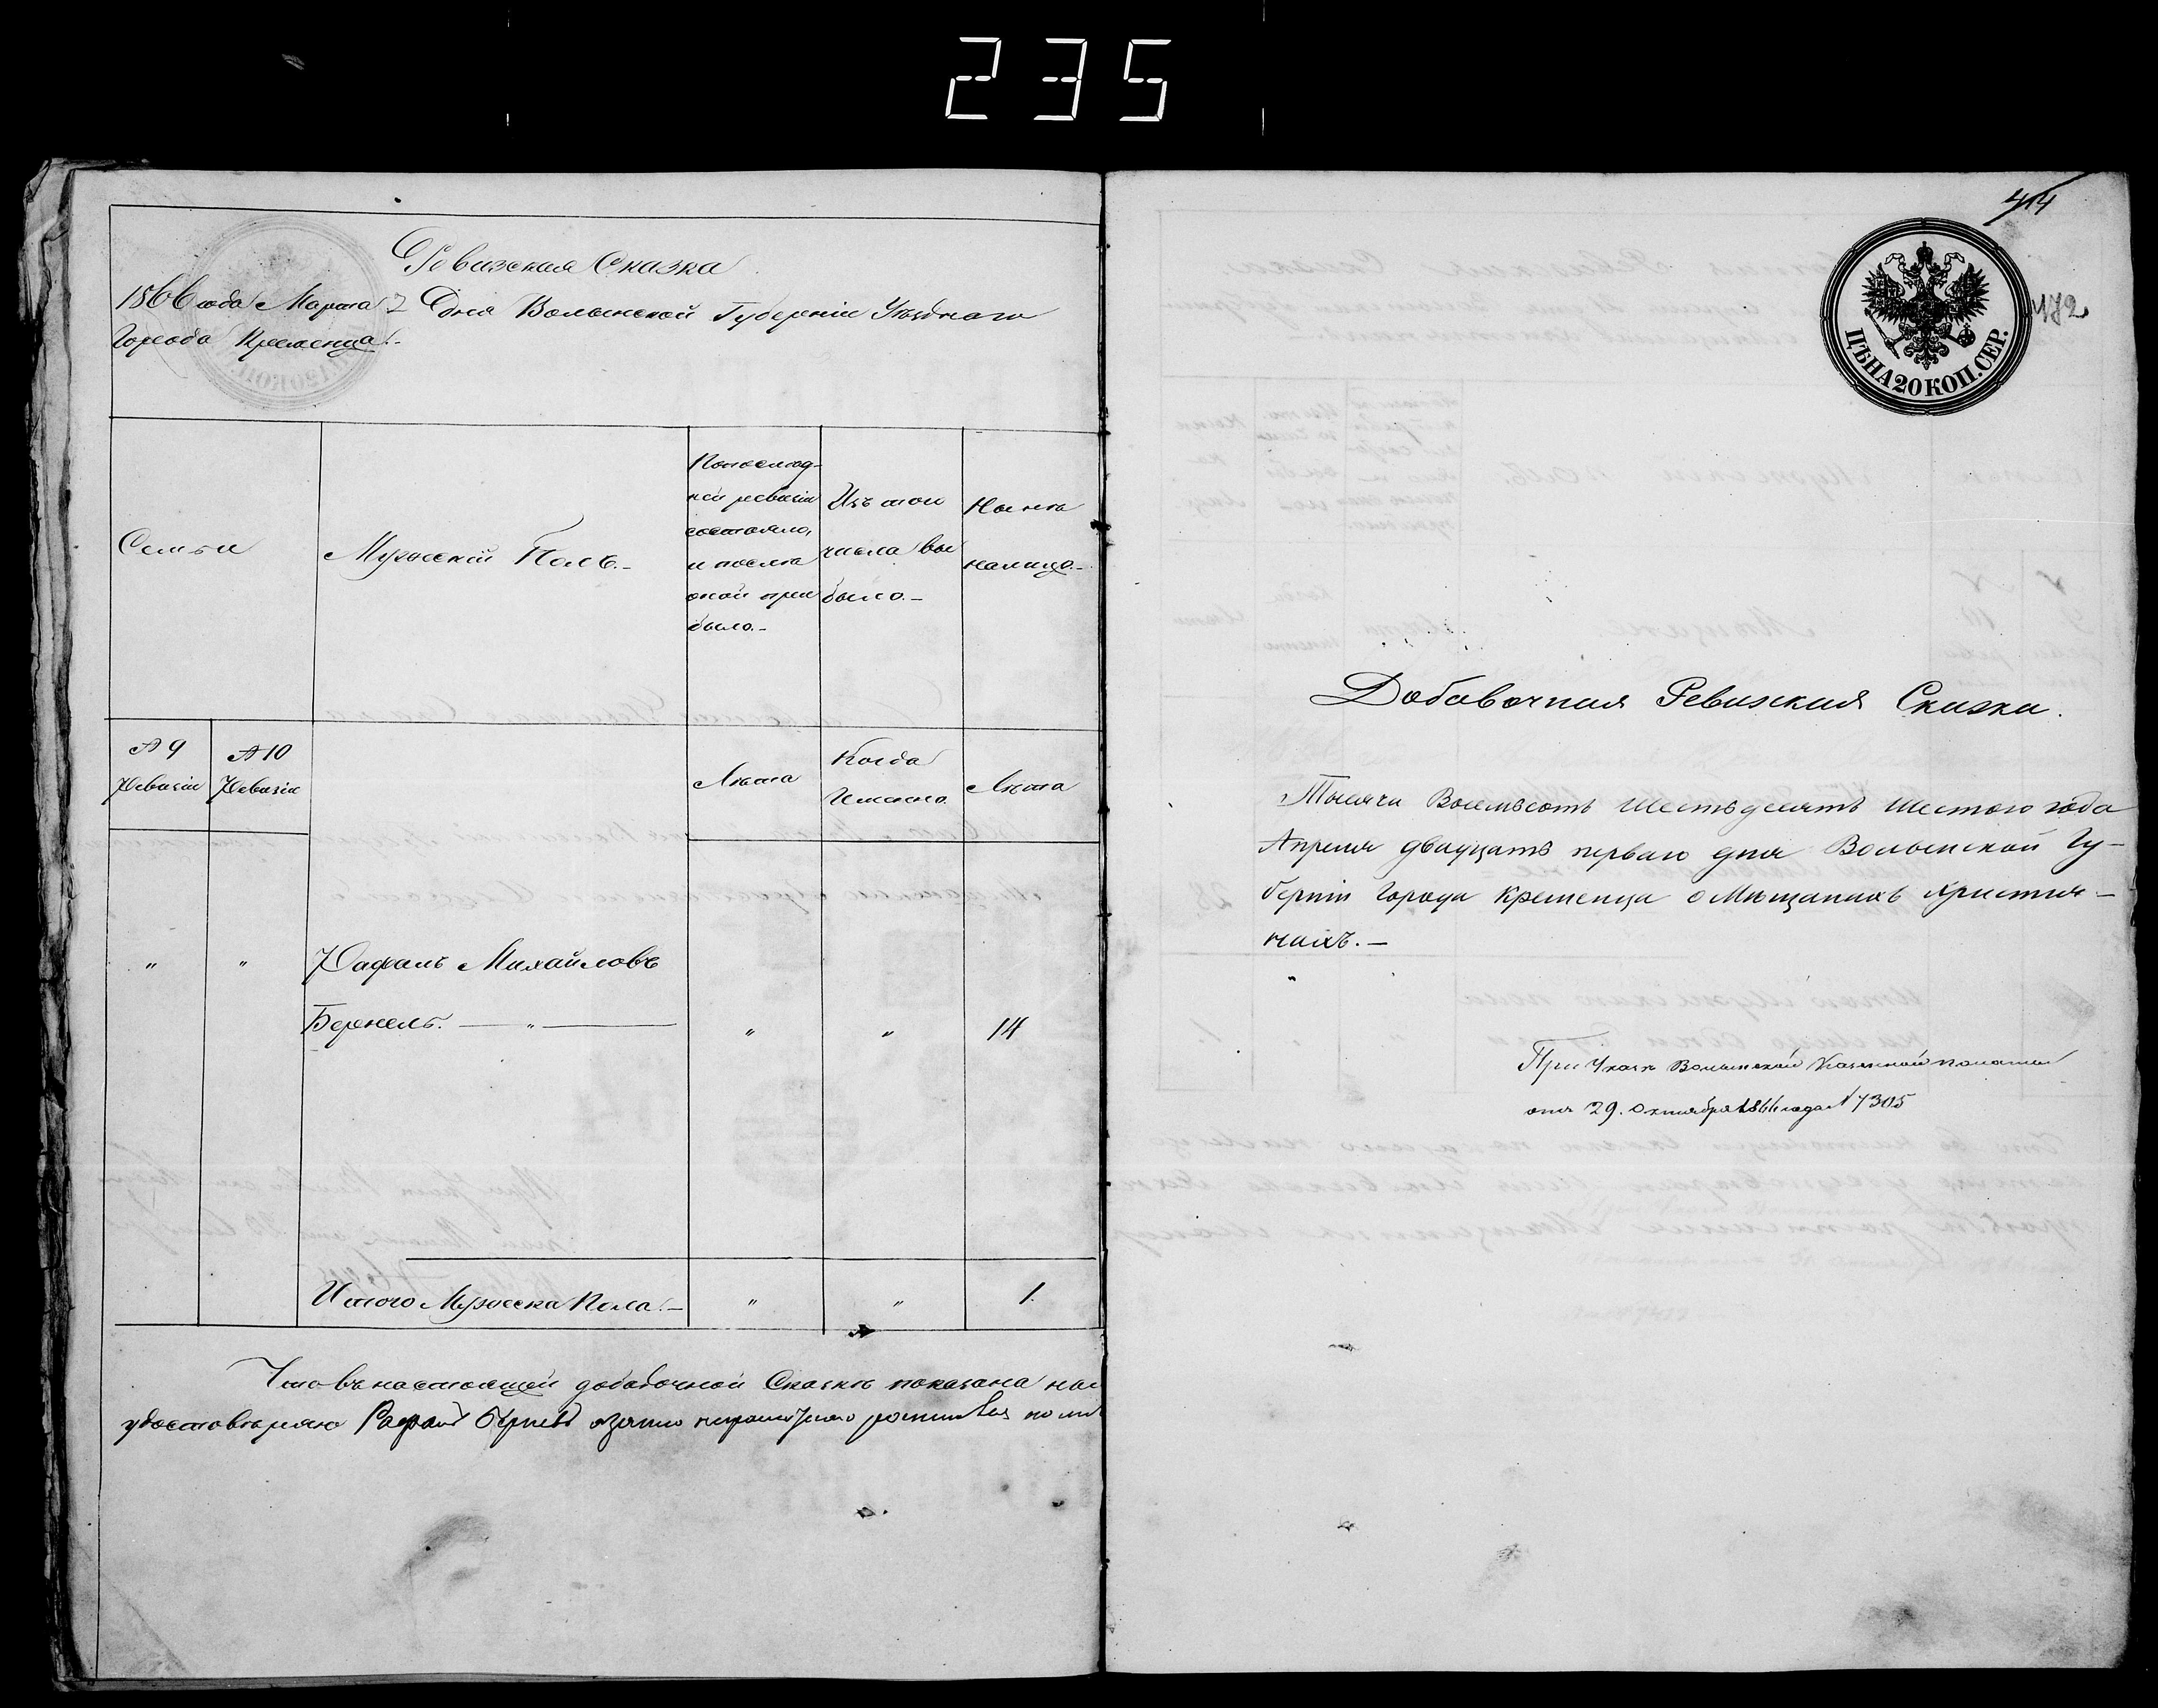 235
Ревизская Сказка
1866 года Марта 2 Дня Волынской Губерніи Уѣзднаго
Города Кременца.-
Семьи
Мужескій Полъ.-
Попослѣд-
ней ревизіи
состояло,
и послѣ
оной при
было.-
Изъ того
числа вы
было.-
Нынѣ
налицо.-
№ 9
Ревизіи
№ 10
Ревизіи
Лѣта
Когда
Именно.
Лѣта
" "
Рафаль Михайловъ
Бернель. — " — " " 14
Итого Мужеска Пола.- " " 1.
Что въ настоящей добавочной Сказкѣ показана
удостовѣряю Рафалъ
414
472
ЦѢНА 20 КОП. СЕР.
Добавочная Ревизская Сказка.
Тысяча Восемьсотъ Шестьдесятъ Шестого года
Апреля двадцать перваго дня Волынской Гу-
берніи Города Кременца о Мѣщанахъ Христия-
нахъ.-
При Указѣ Волынской Казенной палаты
отъ 29. Октября 1866 года № 7305